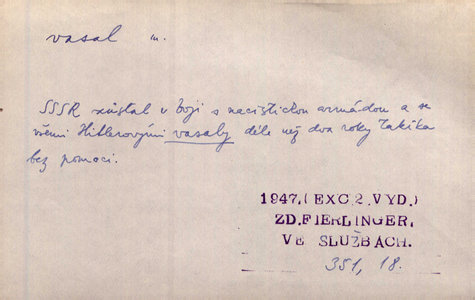 vasal m.
SSSR zůstal v boji s nacistickou armádou a se
všemi Hitlerovými vasaly déle než dva roky takřka
bez pomoci.
1947. (EXC. 2. VYD.)
ZD. FIERLINGER,
VE SLUŽBÁCH.
351, 18.